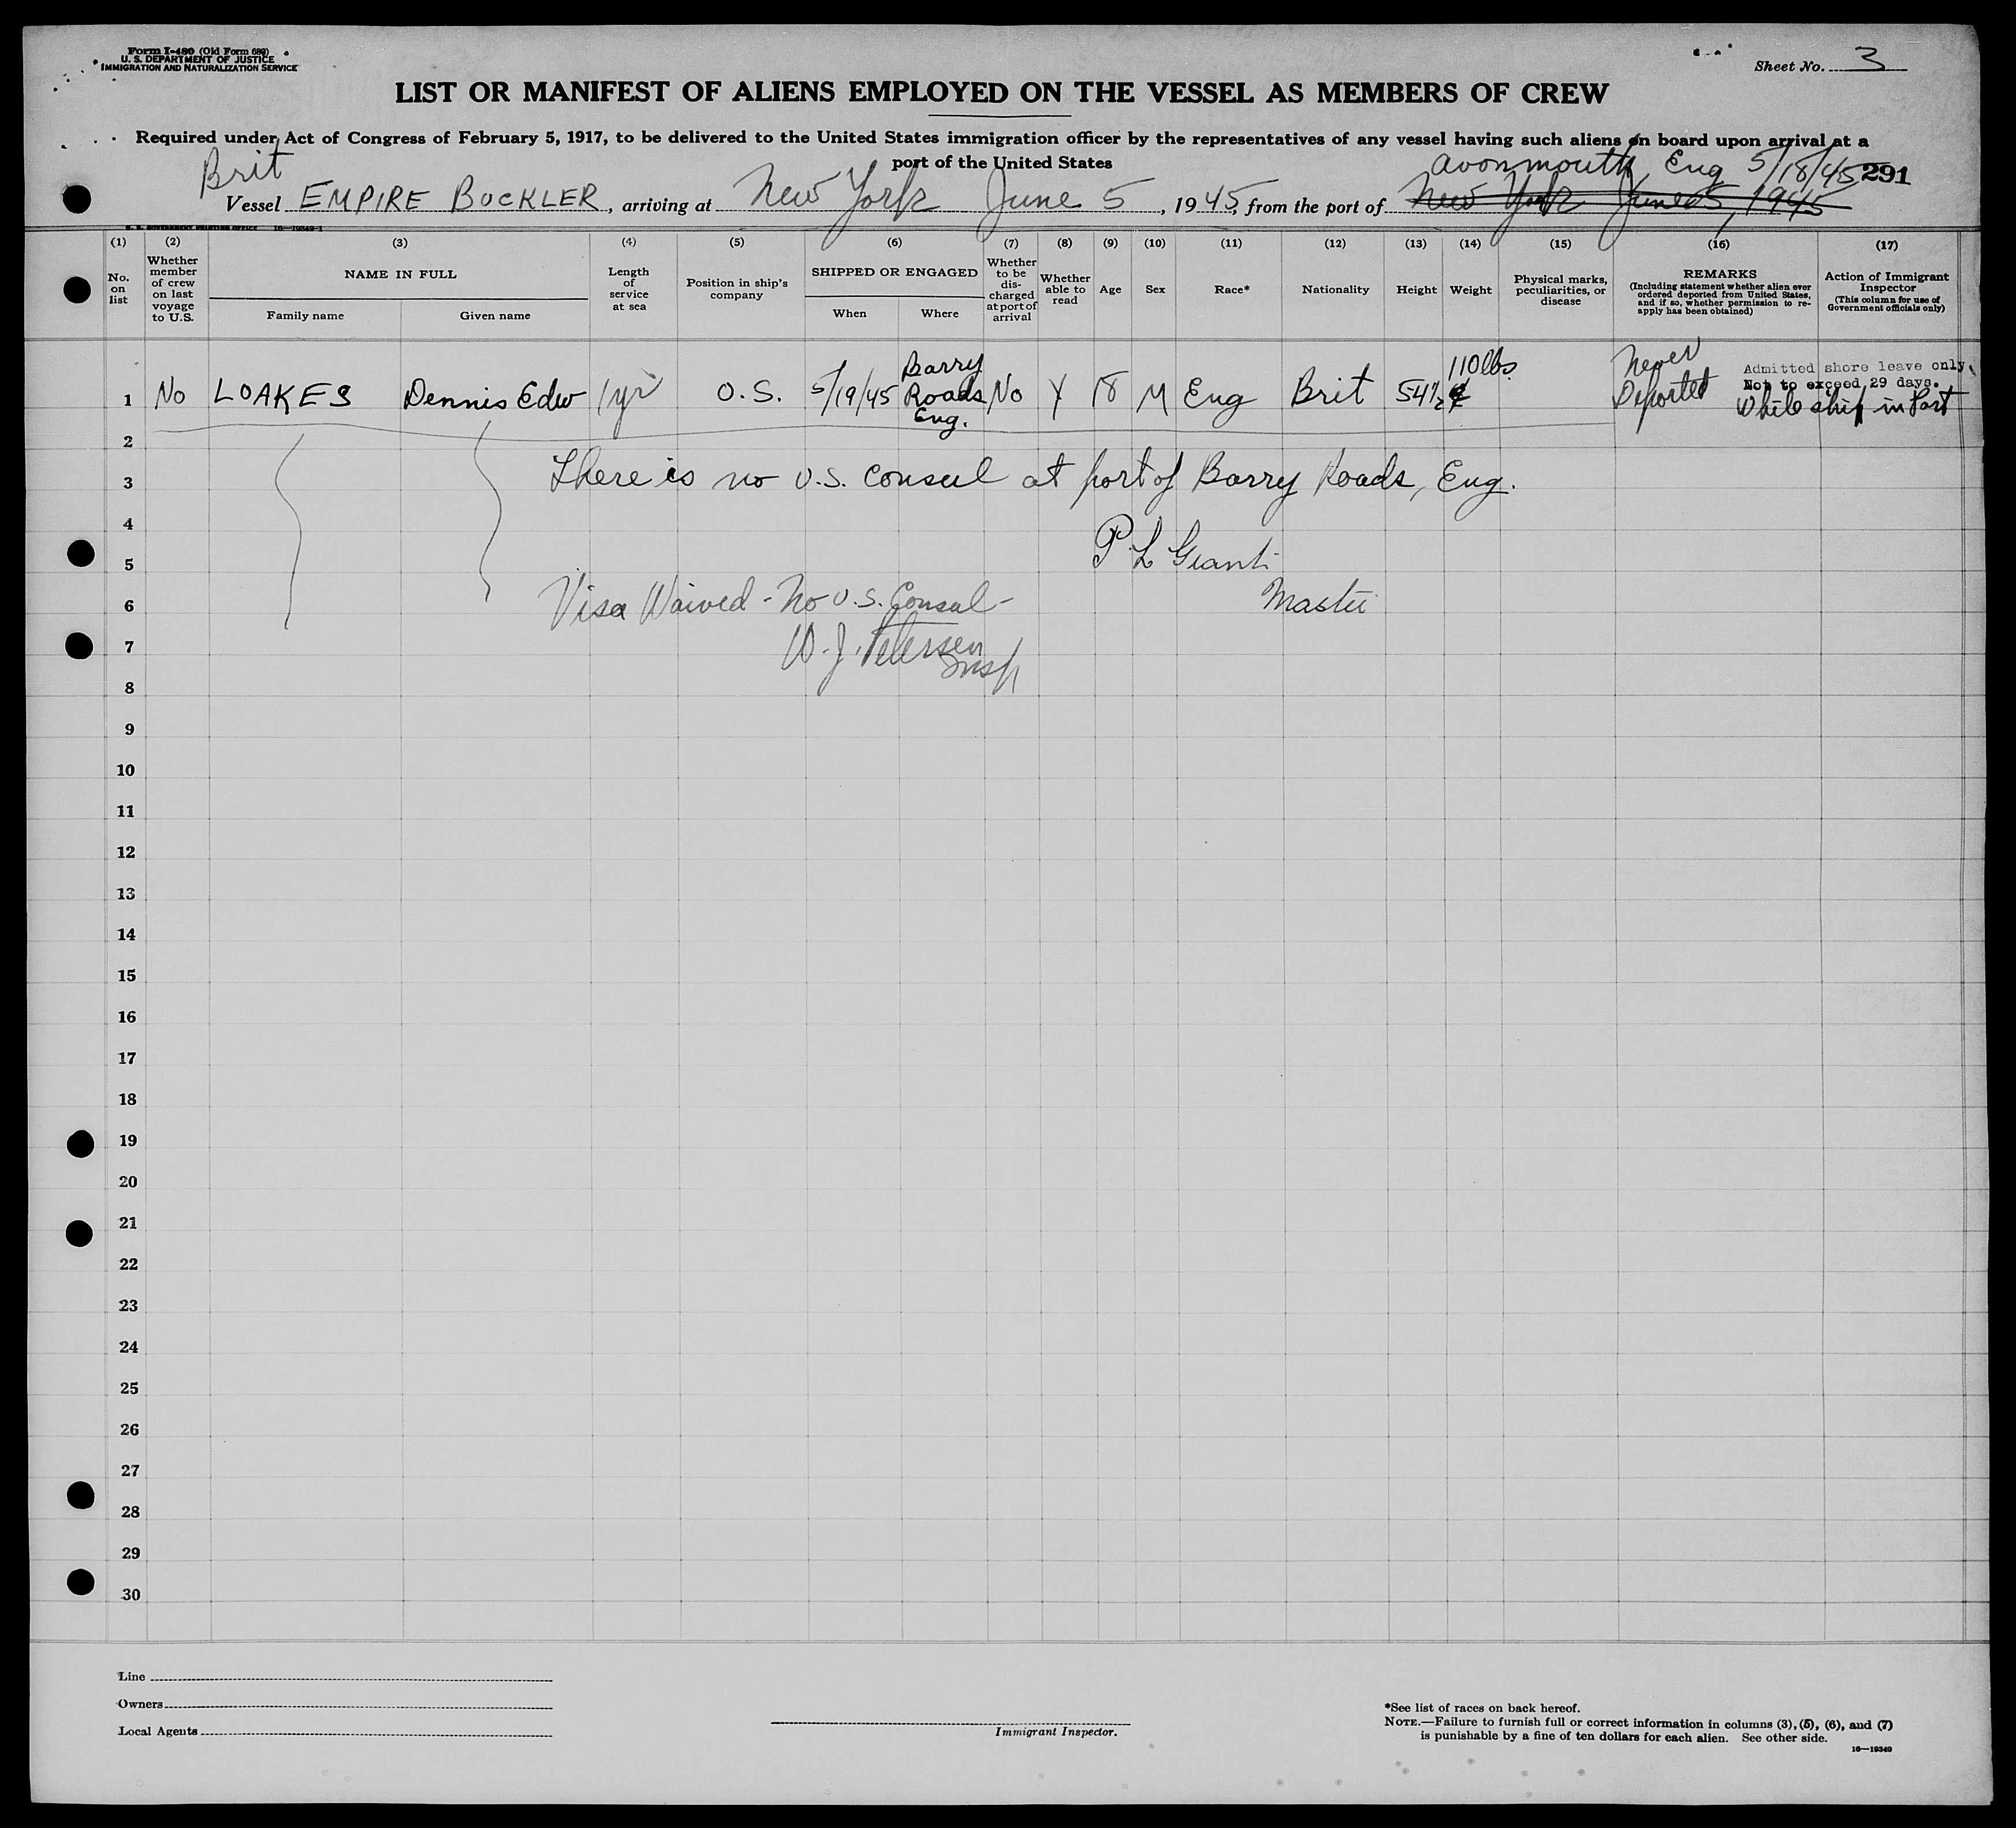 Form I-480 (Old Form 689)
U. S. DEPARTMENT OF JUSTICE
IMMIGRATION AND NATURALIZATION SERVICE
Sheet No. 3
LIST OR MANIFEST OF ALIENS EMPLOYED ON THE VESSEL AS MEMBERS OF CREW
Required under Act of Congress of February 5, 1917, to be delivered to the United States immigration officer by the representatives of any vessel having such aliens on board upon arrival at a
port of the United States
Brit
Avonmouth, Eng 5/18/45 291
Vessel EMPIRE BUCKLER, arriving at New York June 5, 1945, from the port of New York June 5, 1945
(1) (2) (3) (4) (5) (6) (7) (8) (9) (10) (11) (12) (13) (14) (15) (16) (17)
No. on list
Whether member of crew on last voyage to U.S.
NAME IN FULL
Family name
Given name
Length of service at sea
Position in ship's company
SHIPPED OR ENGAGED
When
Where
Whether to be discharged at port of arrival
Whether able to read
Age
Sex
Race*
Nationality
Height
Weight
Physical marks, peculiarities, or disease
REMARKS
(Including statement whether alien ever ordered deported from United States, and if so, whether permission to re-apply has been obtained)
Action of Immigrant Inspector
(This column for use of Government officials only)
1 No LOAKES Dennis Edw 1yr O.S. 5/19/45 Barry Roads Eng. No Y 18 M Eng Brit 5 4½ 110lbs Never Deported
Admitted shore leave only.
Not to exceed 29 days.
While ship in Port
2
3 There is no U.S. Consul at port of Barry Roads, Eng.
4
5 P. L. Grant
6 Visa Waived - No U.S. Consul - Master
7 W. J. Petersen
Insp
8
9
10
11
12
13
14
15
16
17
18
19
20
21
22
23
24
25
26
27
28
29
30
Line
Owners
Local Agents
Immigrant Inspector.
*See list of races on back hereof.
NOTE.—Failure to furnish full or correct information in columns (3), (5), (6), and (7)
is punishable by a fine of ten dollars for each alien. See other side.
16—19349